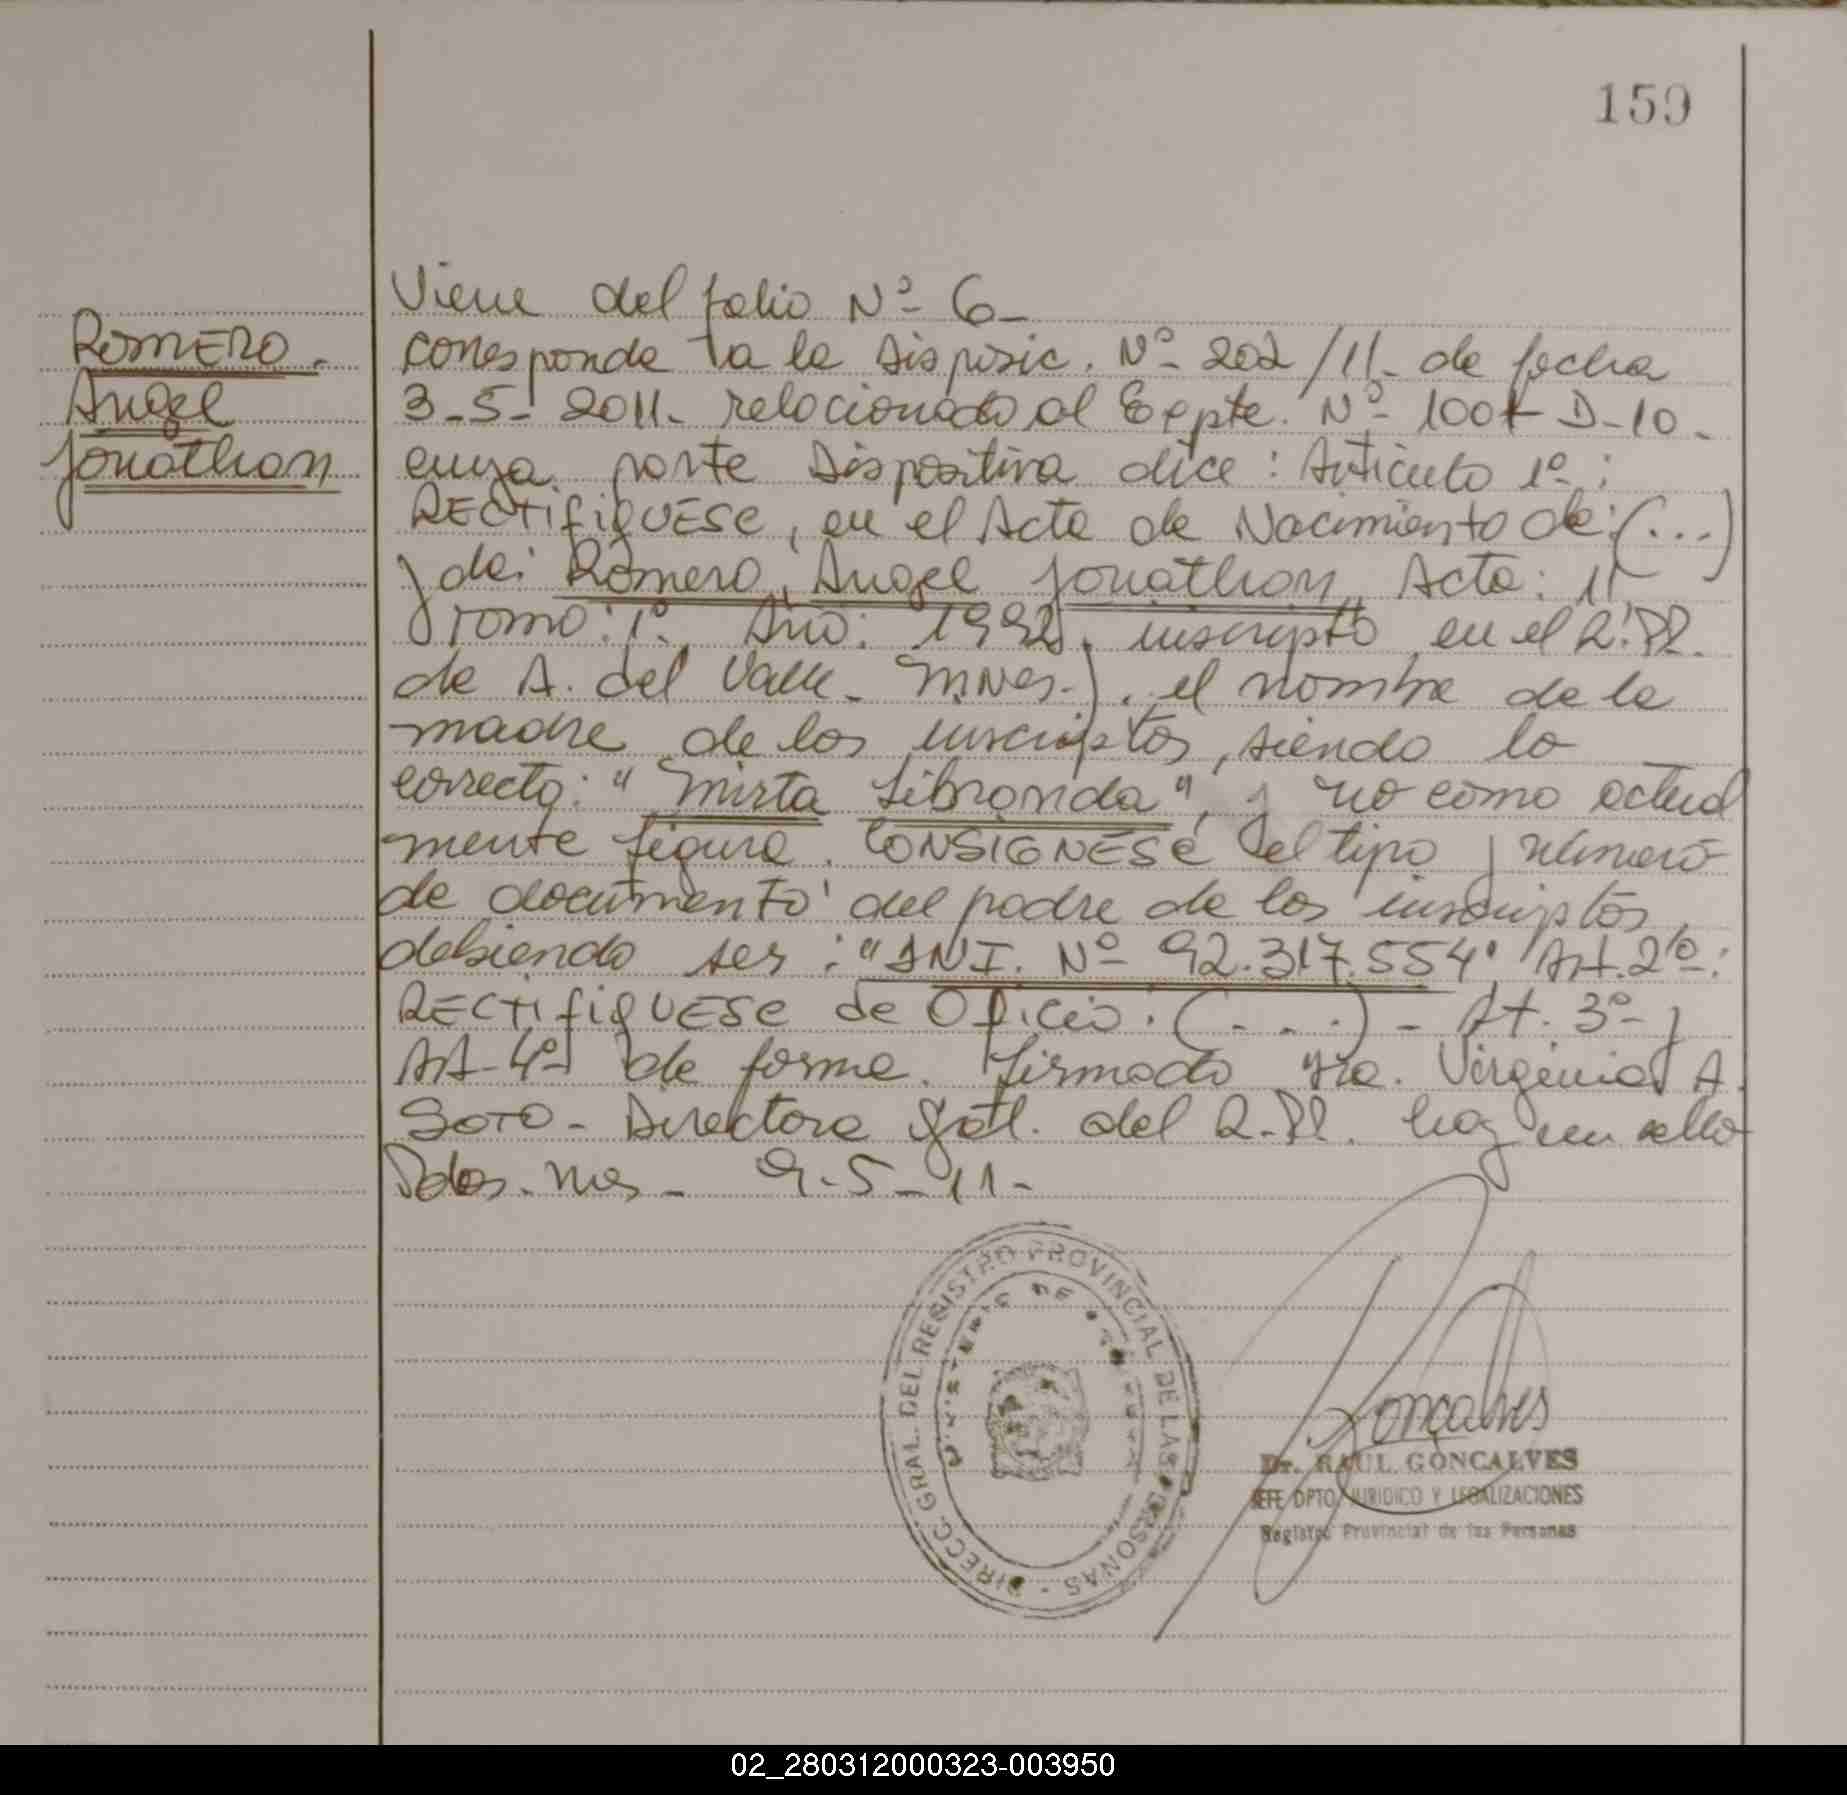 159
ROMERO.
Angel
Jonathan
Viene del folio Nº 6-
corresponde a la Disposic. Nº 202/11- de fecha
3-5-2011- relacionado al Expte. Nº 100 D-10-
cuya parte Dispositiva dice: Artículo 1º:
RECTIFIQUESE, en el Acta de Nacimiento de: (...)
y de: Romero, Angel Jonathan, Acta: 11
Tomo: 1º, Año: 1992, inscripto en el R.PP.
de A. del Valle- Mnes.), el nombre de la
madre de los inscriptos, siendo lo
correcto: "Mirta Libranda", y no como actual
mente figura. CONSIGNESE el tipo y número
de documento del padre de los inscriptos
debiendo ser: "DNI. Nº 92.317.554" Art. 2º:
RECTIFIQUESE de Oficio. (....) - Art. 3º y
Art- 4º de forma. Firmado Sra. Virginia A.
SOTO- Directora Gral. del R.PP. hay un sello
Pdas. Mes- 9-5-11-
DIRECC. GRAL. DEL REGISTRO PROVINCIAL DE LAS PERSONAS
Goncalves
Dr. RAUL GONCALVES
JEFE DPTO. JURIDICO Y LEGALIZACIONES
Registro Provincial de las Personas
02_280312000323-003950